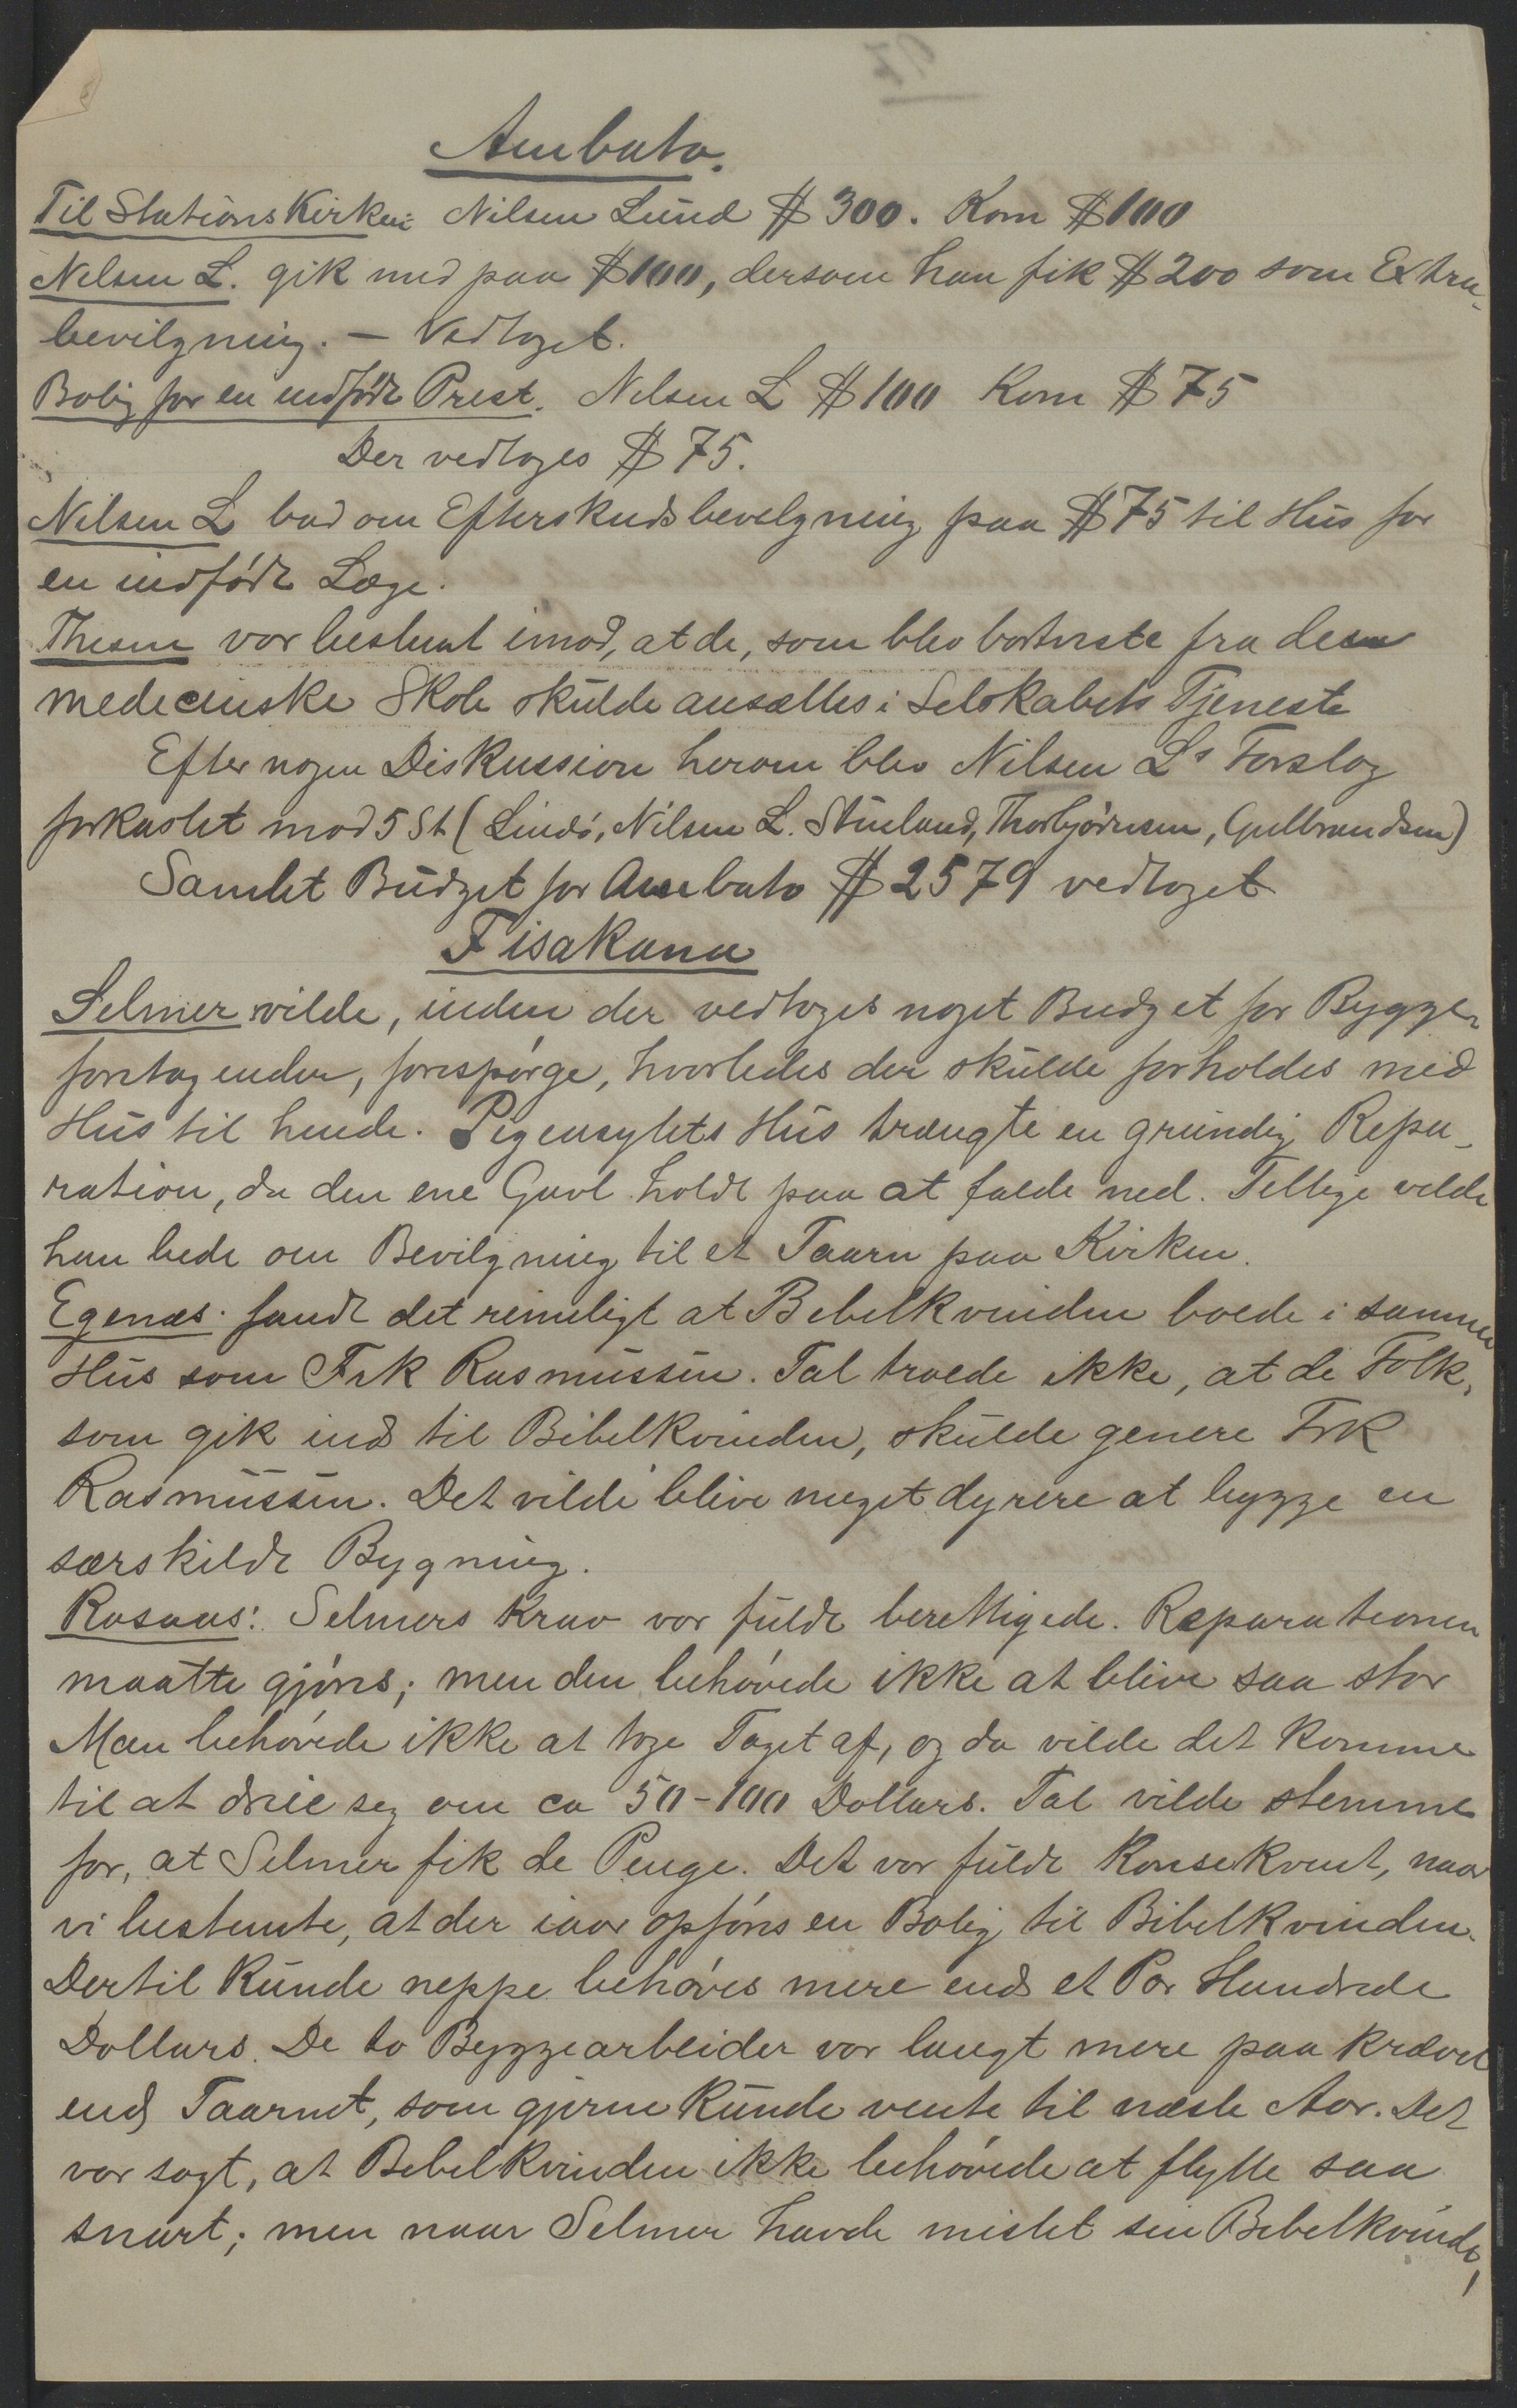 Ambato.
Til Stationskirken: Nilsen Lund $ 300. Kom $ 100
Nilsen L. gik med paa $ 100, dersom han fik $ 200 som Extra-
bevilgning. – Vedtaget.
Bolig for en indfödt Prest. Nilsen L $ 100 Kom $ 75
Der vedtoges $ 75.
Nilsen L bad om Efterskudsbevilgning paa $ 75 til Hus for
en indfödt Læge.
Thesen var bestemt imod, at de, som blev bortviste fra den
medecinske Skole skulde ansættes i Selskabets Tjeneste
Efter nogen Diskussion herom blev Nilsen L's Forslag
forkastet mod 5 St (Lindö, Nilsen L. Stueland, Thorbjörnsen, Gulbrandsen)
Samlet Budget for Ambato $ 2579 vedtaget
Fisakana
Selmer vilde, inden der vedtoges noget Budget for Bygge-
foretagender, forespörge, hvorledes der skulde forholdes med
Hus til hende. Pigeasylets Hus trængte en grundig Repa-
ration, da den ene Gavl holdt paa at falde ned. Tillige vilde
han bede om Bevilgning til et Taarn paa Kirken.
Egenæs: fandt det rimeligt at Bibelkvinden boede i samme
Hus som Frk Rasmussen. Tal troede ikke, at de Folk,
som gik ind til Bibelkvinden, skulde genere Frk
Rasmussen. Det vilde blive meget dyrere at bygge en
særskildt Bygning.
Rosaas: Selmers Krav var fuldt berettigede. Reparationen
maatte gjöres; men den behövede ikke at blive saa stor
Man behövede ikke at tage Taget af, og da vilde det komme
til at dreie seg om ca 50-100 Dollars. Tal vilde stemme
for, at Selmer fik de Penge. Det var fuldt konsekvent, naar
vi bestemte, at der iaar opföres en Bolig til Bibelkvinden.
Dertil kunde neppe behöves mere end et Par Hundrede
Dollars. De to Byggearbeider var langt mere paakrævet
end Taarnet, som gjerne kunde vente til næste Aar. Det
var sagt, at Bibelkvinden ikke behövede at flytte saa
snart; men naar Selmer havde mistet sin Bibelkvinde,